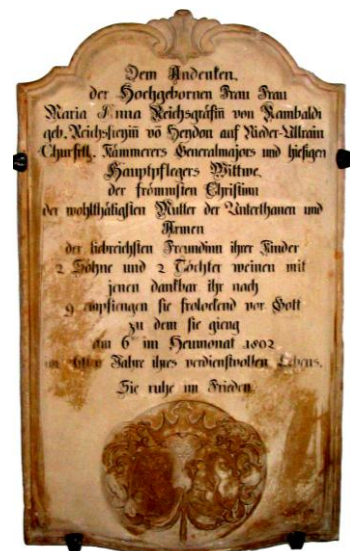 Dem Andenken.
der Hochgebornen Frau Frau
Maria Anna Reichsgräfin von Rambaldi
geb. Reichsfreyin võ Heydon auf Nieder-Ullrain
Churfrtl. Kämmerers Generalmajors und hiesigen
Hauptpflegers Wittwe.
der frömmsten Christinn
der wohlthätigsten Mutter der Unterthanen und
Armen
der liebreichsten Freundinn ihrer Kinder
2 Söhne und 2 Töchter weinen mit
jenen dankbar ihr nach
9 empfiengen sie frolockend vor Gott
zu dem sie gieng
am 6ᵗ im Heumonat 1802
im Jahre ihres verdienstvollen Lebens.
Sie ruhe im Frieden.